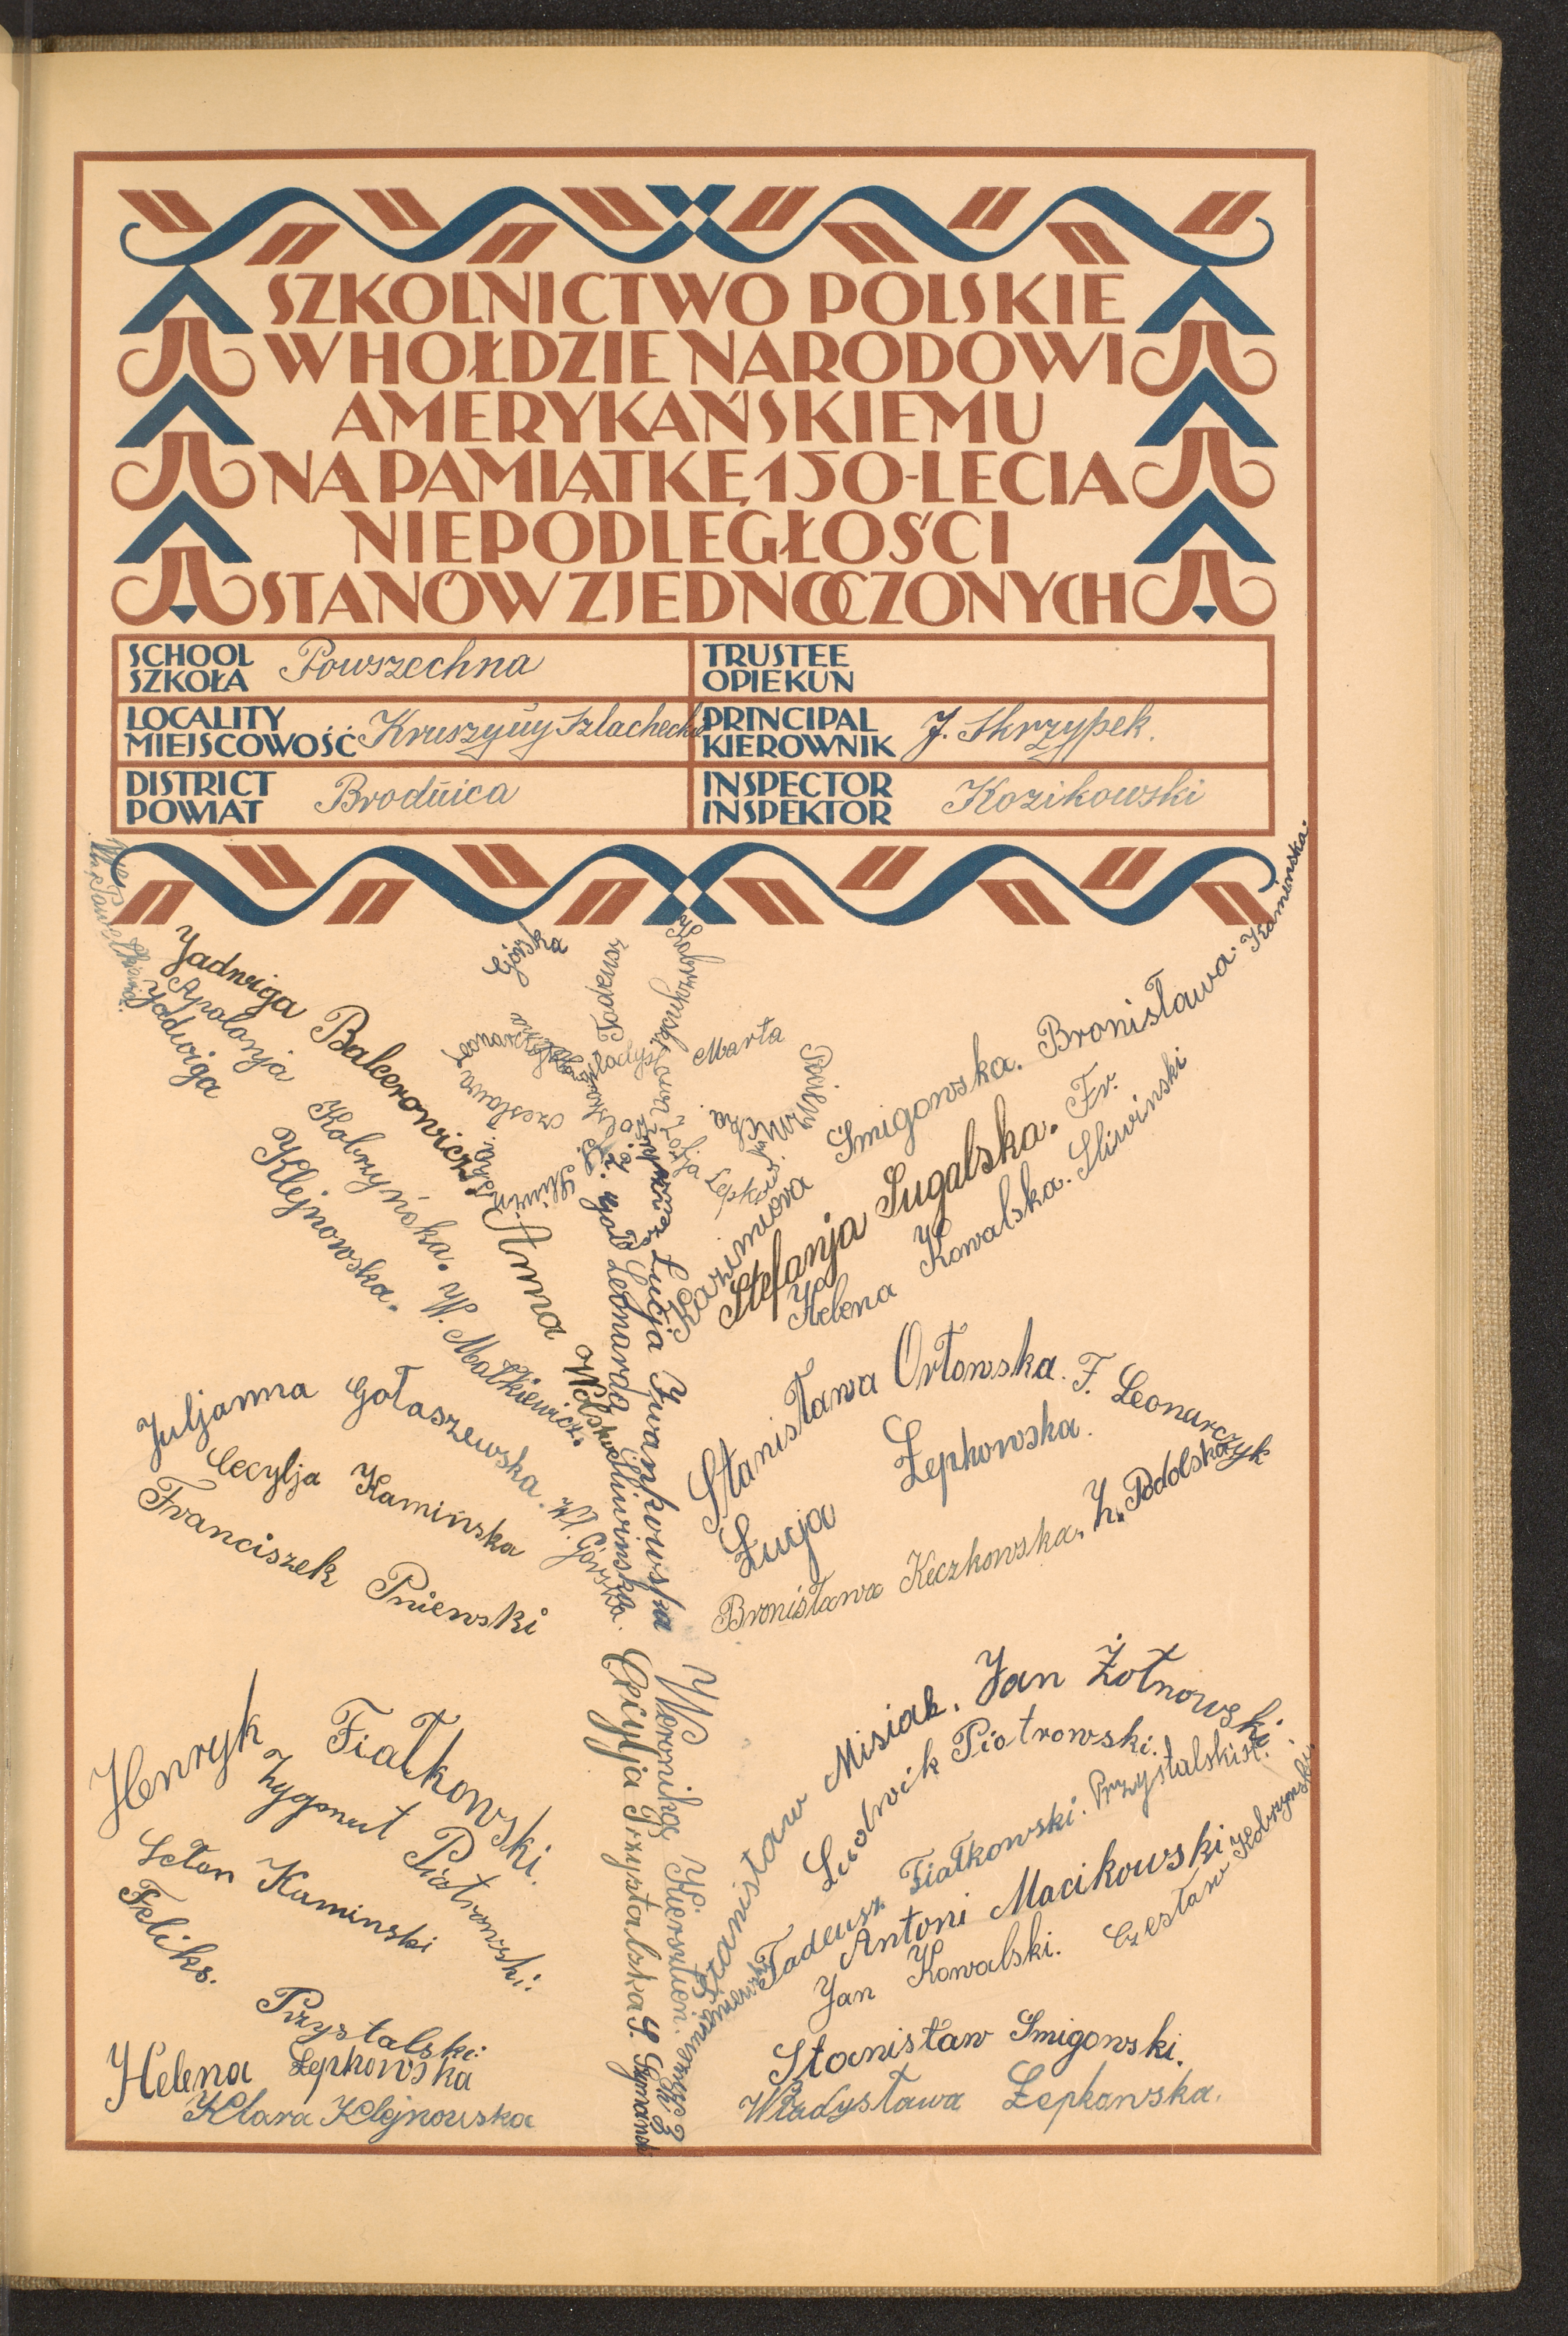 SZKOLNICTWO POLSKIE
W HOŁDZIE NARODOWI
AMERYKAŃSKIEMU
NA PAMIĄTKĘ 150-LECIA
NIEPODLEGŁOŚCI
STANÓW ZJEDNOCZONYCH
SCHOOL
SZKOŁA
Powszechna
TRUSTEE
OPIEKUN
LOCALITY
MIEJSCOWOŚĆ
Kruszyny Szlacheckie
PRINCIPAL
KIEROWNIK
J. Skrzypek.
DISTRICT
POWIAT
Brodnica
INSPECTOR
INSPEKTOR
Kozikowski
Jadwiga Balcerowicz.
Apolonja Kobryńska. W. Małkiewicz.
Jadwiga Klejnowska.
Anna Wolska
Górska
Tadeusz
Marta
Kazimiera Smigowska. Bronisława Kaminska.
Stefanja Sugalska. Fr.
Helena Kowalska. Sliwinski
Leonarda Sliwinska.
Łucja Iwankowska
Juljanna Gołaszewska. Wł. Górska.
Cecylja Kamińska
Franciszek Pniewski
Stanisława Orłowska. F. Leonarczyk
Łucja Łepkowska.
Bronisława Keczkowska. Z. Podolska
Henryk Fiałkowski.
Zygmut Piotrowski.
Kaminski
Feliks. Przystalski
Helena Łepkowska
Klara Klejnowska
Cecylja Przystalska
Weronika Kiersztion.
Stanisław Misiak. Jan Żołnowski.
Ludwik Piotrowski.
Tadeusz Fiałkowski. Przystalski St.
Antoni Macikowski
Jan Kowalski. Czesław Kobrzynski.
Stanisław Smigowski.
Władysława Łepkowska.